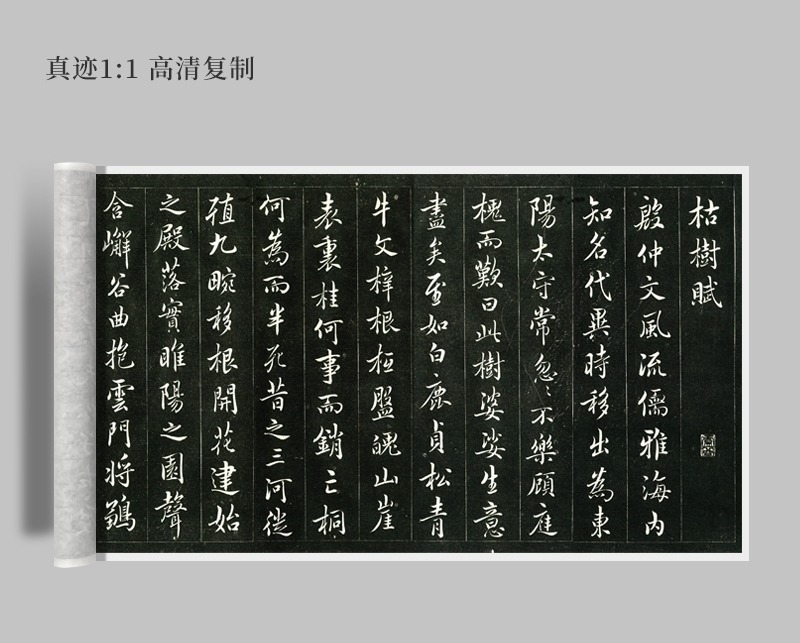 真迹1:1 高清复制
枯樹賦
殷仲文風流儒雅海内
知名代異時移出為東
陽太守常忽忽不樂顧庭
槐而歎曰此樹婆娑生意
盡矣至如白鹿貞松青
牛文梓根柢盤魄山崖
表裏桂何事而銷亡桐
何為而半死昔之三河徙
殖九畹移根開花建始
之殿落實睢陽之園聲
含嶰谷曲抱雲門将鶵